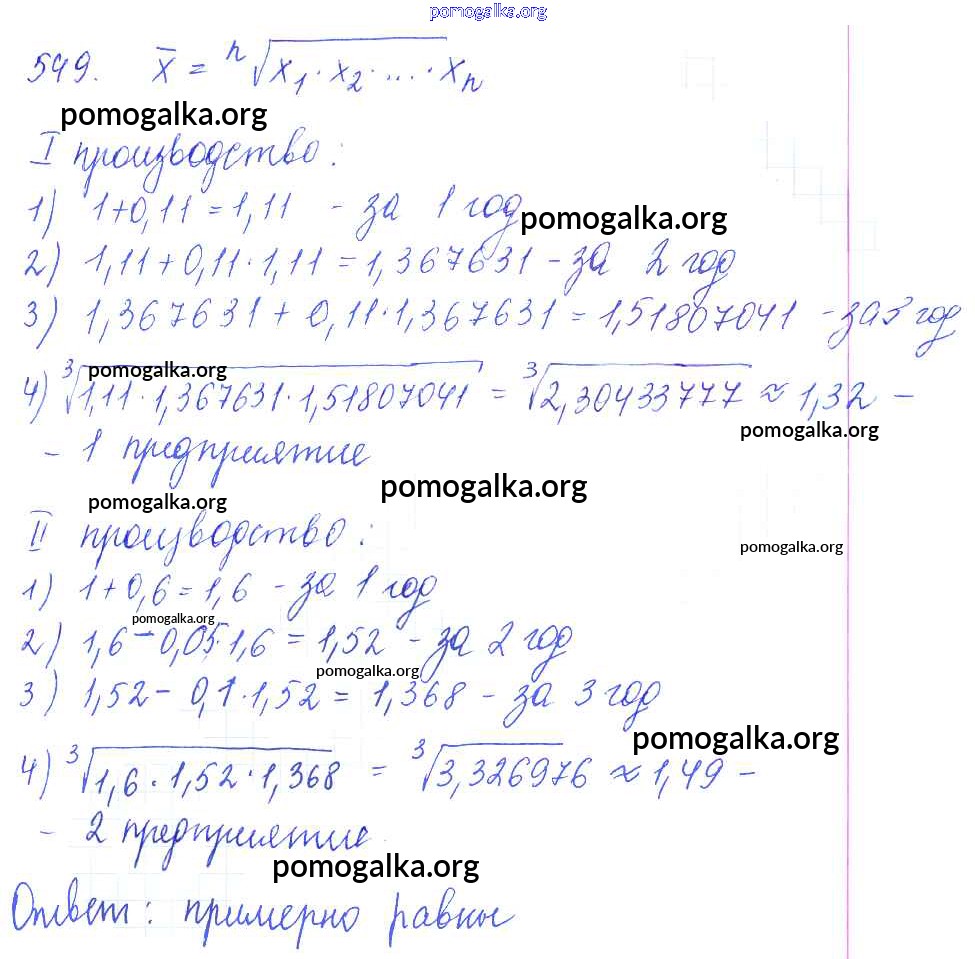 pomogalka.org
549. x̄ = ⁿ√x₁·x₂·...·xₙ
pomogalka.org
I производство:
1) 1+0,11=1,11 - за 1 год
pomogalka.org
2) 1,11+0,11·1,11=1,367631 - за 2 год
3) 1,367631+0,11·1,367631=1,51807041 - за 3 год
pomogalka.org
4) ³√1,11·1,367631·1,51807041 = ³√2,30433777 ≈ 1,32 -
pomogalka.org
- 1 предприятие
pomogalka.org
pomogalka.org
II производство:
pomogalka.org
1) 1+0,6=1,6 - за 1 год
pomogalka.org
2) 1,6-0,05·1,6=1,52 - за 2 год
pomogalka.org
3) 1,52-0,1·1,52=1,368 - за 3 год
pomogalka.org
4) ³√1,6·1,52·1,368 = ³√3,326976 ≈ 1,49 -
- 2 предприятие
pomogalka.org
Ответ: примерно равны